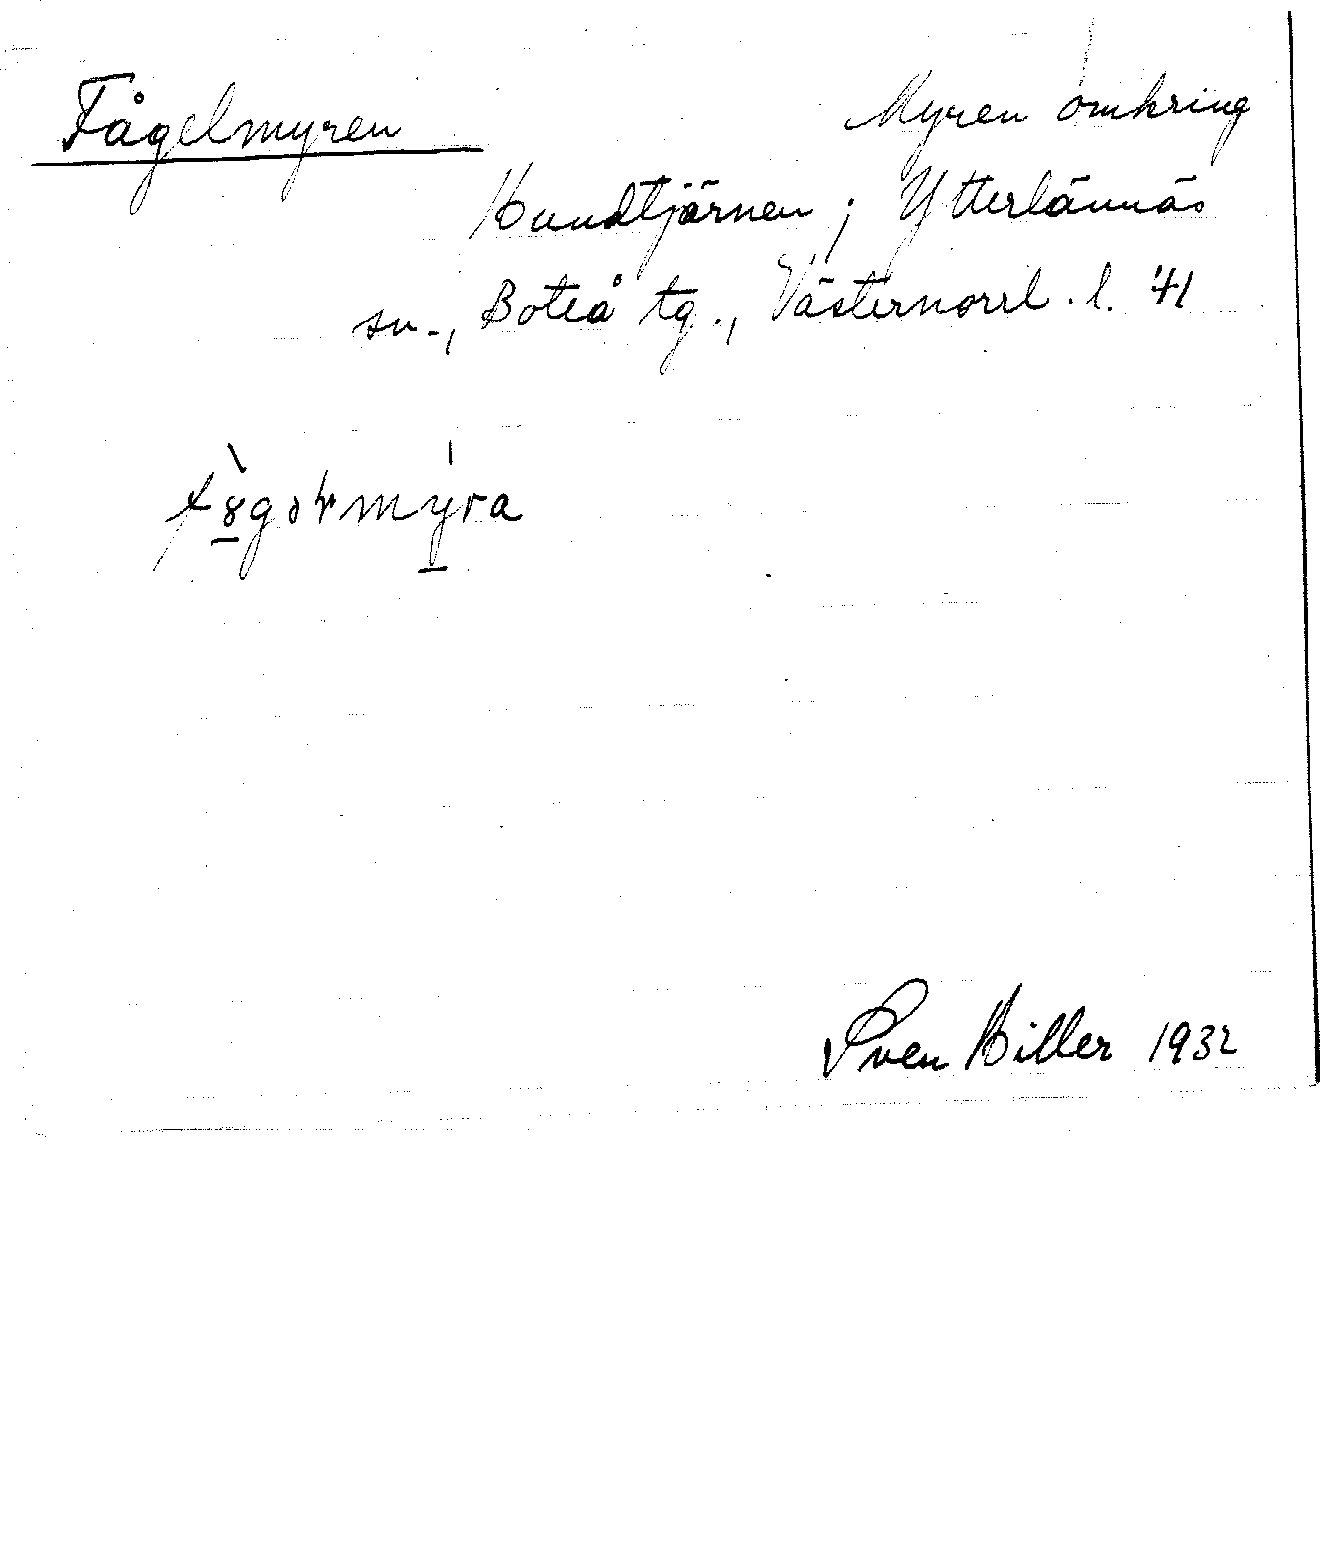 Fågelmyren
Myren omkring
Hundtjärnen; Ytterlännäs
sn., Boteå tg., Västernorrl. l. '41
Sven Hiller 1932